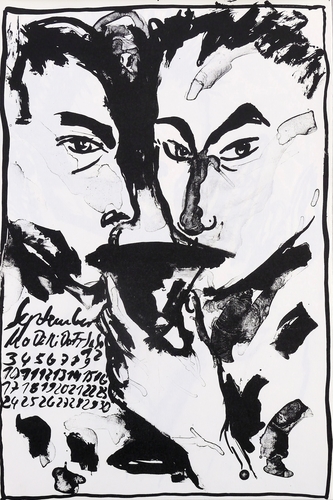 September
Mo Di Mi Do Fr Sa So
3 4 5 6 7 8 9
10 11 12 13 14 15 16
17 18 19 20 21 22 23
24 25 26 27 28 29 30